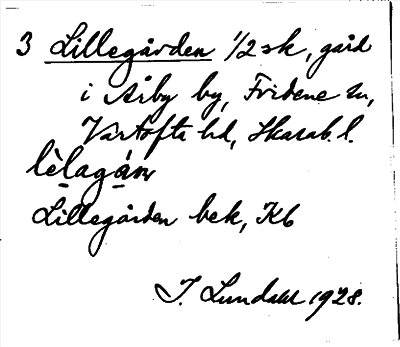 3 Lillegården 1/2 sk, gård
i Åby by, Fridene sn,
Vartofta hd, Skarab. l.
lèlagán
Lillegården bek, Kb
I. Lundahl 1928.